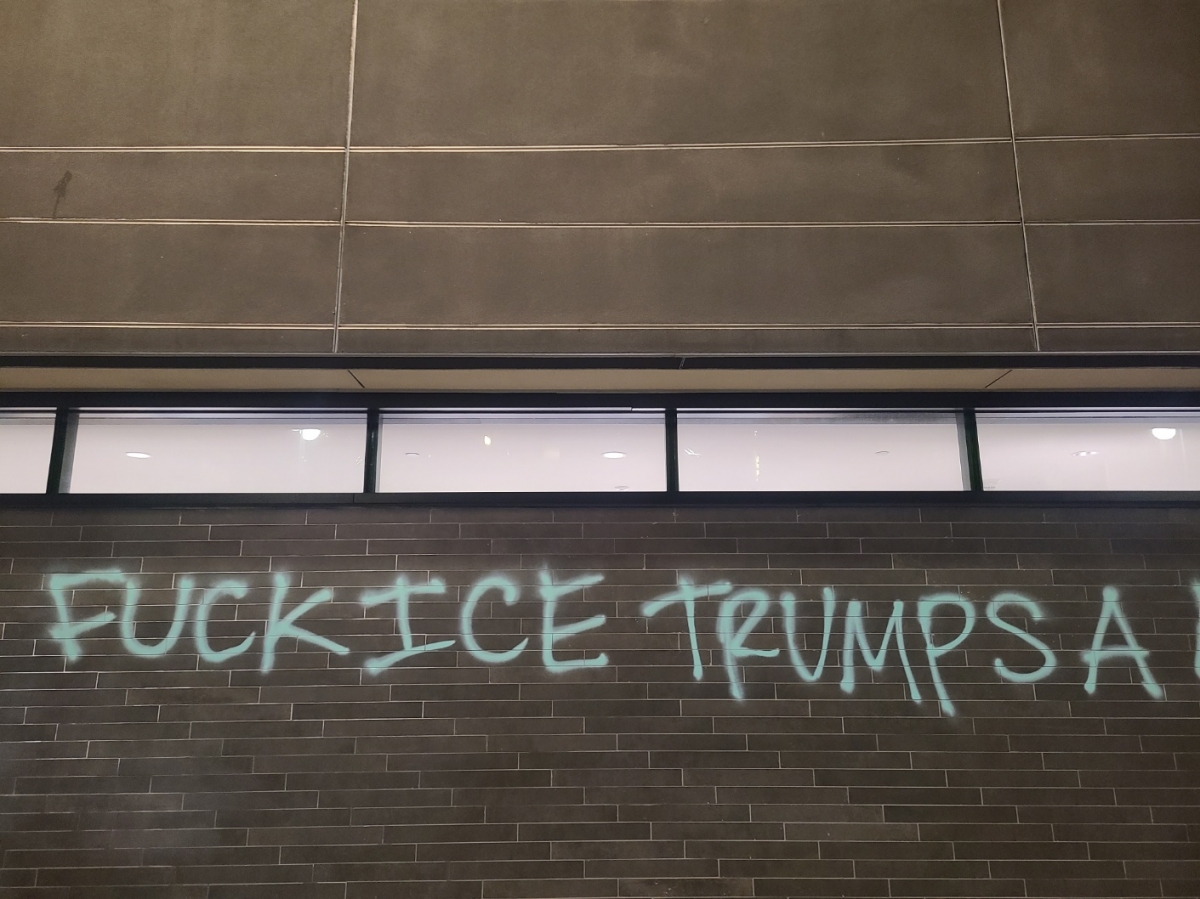 FUCK ICE TRUMPS A